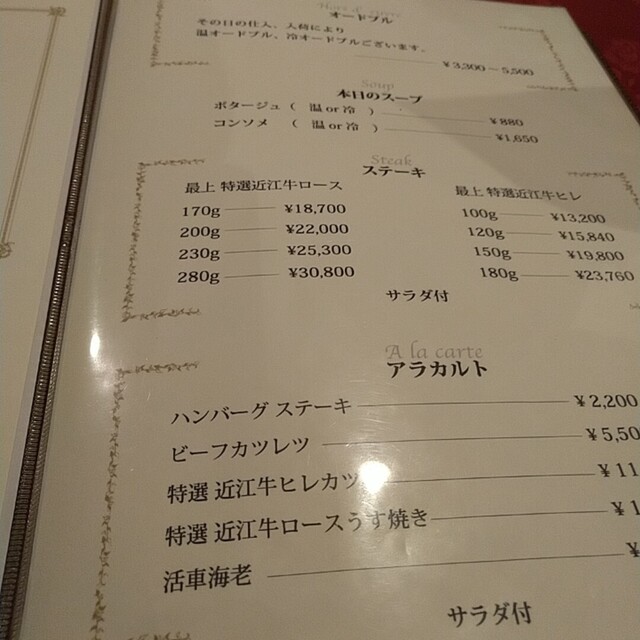 Hors d' œuvre
オードブル
その日の仕入、人数により
温オードブル、冷オードブルございます。
¥3,300－5,500
Soup
本日のスープ
ポタージュ ( 温 or 冷 ) ¥880
コンソメ ( 温 or 冷 ) ¥1,650
Steak
ステーキ
最上 特選近江牛ロース
170g ¥18,700
200g ¥22,000
230g ¥25,300
280g ¥30,800
最上 特選近江牛ヒレ
100g ¥13,200
120g ¥15,840
150g ¥19,800
180g ¥23,760
サラダ付
A la carte
アラカルト
ハンバーグ ステーキ ¥2,200
ビーフカツレツ ¥5,50
特選 近江牛ヒレカツ ¥11
特選 近江牛ロースうす焼き ¥1
活車海老 ¥
サラダ付